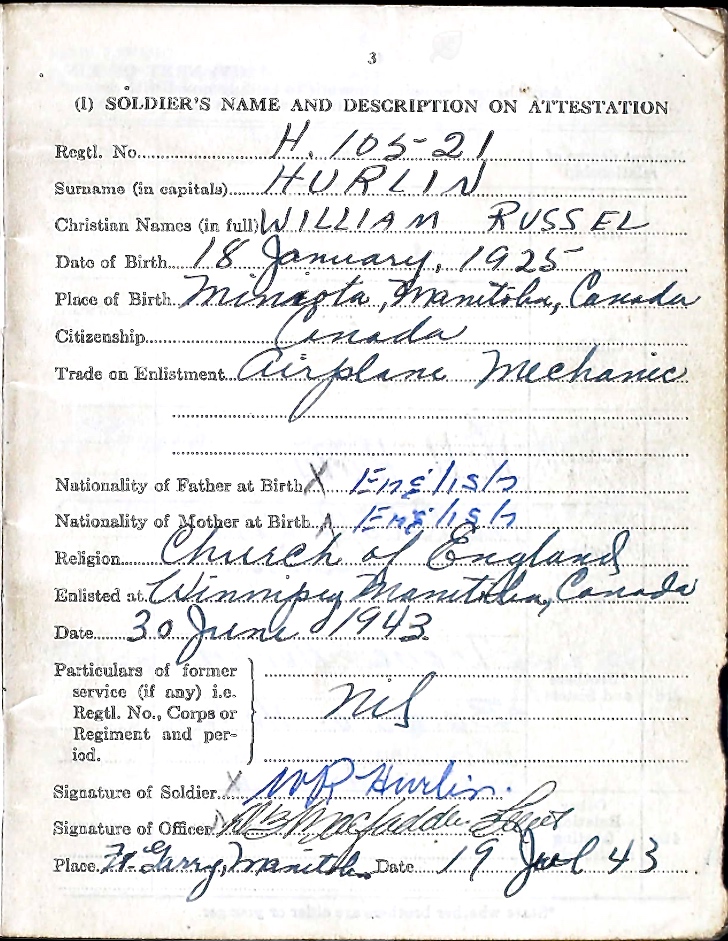 3
(1) SOLDIER'S NAME AND DESCRIPTION ON ATTESTATION
Regtl. No. H. 105-21
Surname (in capitals) HURLIN
Christian Names (in full) WILLIAM RUSSEL
Date of Birth 18 January, 1925
Place of Birth Miniota, Manitoba, Canada
Citizenship Canada
Trade on Enlistment Airplane Mechanic
Nationality of Father at Birth X English
Nationality of Mother at Birth X English
Religion Church of England
Enlisted at Winnipeg Manitoba, Canada
Date 30 June 1943
Particulars of former
service (if any) i.e.
Regtl. No., Corps or
Regiment and per-
iod.
Nil
Signature of Soldier X WR Hurlin.
Signature of Officer
Place Ft. Garry, Manitoba Date 19 Jul 43